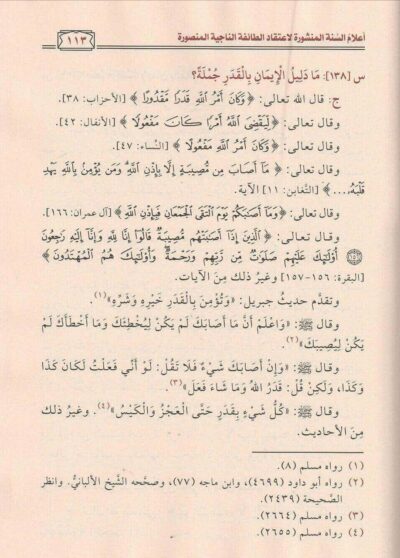 أعلام السنة المنشورة لاعتقاد الطائفة الناجية المنصورة
١١٣
س [١٣٨]: مَا دَلِيلُ الْإِيمَانِ بِالْقَدَرِ جُمْلَةً؟
ج: قال الله تعالى: ﴿وَكَانَ أَمْرُ اللَّهِ قَدَرًا مَقْدُورًا﴾ [الأحزاب: ٣٨].
وقال تعالى: ﴿لِيَقْضِيَ اللَّهُ أَمْرًا كَانَ مَفْعُولًا﴾ [الأنفال: ٤٢].
وقال تعالى: ﴿وَكَانَ أَمْرُ اللَّهِ مَفْعُولًا﴾ [النِّساء: ٤٧].
وقال تعالى: ﴿مَا أَصَابَ مِن مُّصِيبَةٍ إِلَّا بِإِذْنِ اللَّهِ وَمَن يُؤْمِنْ بِاللَّهِ يَهْدِ
قَلْبَهُ،...﴾ [التَّغابن: ١١] الآية.
وقال تعالى: ﴿وَمَا أَصَابَكُمْ يَوْمَ الْتَقَى الْجَمْعَانِ فَبِإِذْنِ اللَّهِ﴾ [آل عمران: ١٦٦].
وقال تعالى: ﴿الَّذِينَ إِذَا أَصَابَتْهُم مُّصِيبَةٌ قَالُوا إِنَّا لِلَّهِ وَإِنَّا إِلَيْهِ رَاجِعُونَ
۝ أُولَٰئِكَ عَلَيْهِمْ صَلَوَاتٌ مِّن رَّبِّهِمْ وَرَحْمَةٌ وَأُولَٰئِكَ هُمُ الْمُهْتَدُونَ﴾
[البقرة: ١٥٦-١٥٧] وغيرُ ذلك مِنَ الآيات.
وتقدَّم حديثُ جبريل: «وَتُؤْمِنَ بِالْقَدَرِ خَيْرِهِ وَشَرِّهِ»(١).
وقال ﷺ: «وَاعْلَمْ أَنَّ مَا أَصَابَكَ لَمْ يَكُنْ لِيُخْطِئَكَ وَمَا أَخْطَأَكَ لَمْ
يَكُنْ لِيُصِيبَكَ»(٢).
وقال ﷺ: «وَإِنْ أَصَابَكَ شَيْءٌ فَلَا تَقُلْ: لَوْ أَنِّي فَعَلْتُ لَكَانَ كَذَا
وَكَذَا، وَلَكِنْ قُلْ: قَدَرُ اللَّهُ وَمَا شَاءَ فَعَلَ»(٣).
وقال ﷺ: «كُلُّ شَيْءٍ بِقَدَرٍ حَتَّى الْعَجْزُ وَالْكَيْسُ»(٤). وغيرُ ذلك
مِنَ الأحاديث.
(١) رواه مسلم (٨).
(٢) رواه أبو داود (٤٦٩٩)، وابن ماجه (٧٧)، وصحَّحه الشَّيخ الألبانيُّ. وانظر
الصَّحيحة (٢٤٣٩).
(٣) رواه مسلم (٢٦٦٤).
(٤) رواه مسلم (٢٦٥٥).